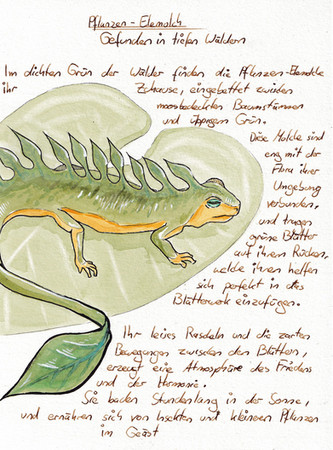 Pflanzen-Elemolch
Gefunden in tiefen Wäldern
Im dichten Grün der Wälder finden die Pflanzen-Elemolche
ihr Zuhause, eingebettet zwischen
moosbedeckten Baumstämmen
und üppigem Grün.
Diese Molche sind
eng mit der
Flora ihrer
Umgebung
verbunden,
und tragen
grüne Blätter
auf ihrem Rücken,
welche ihnen helfen
sich perfekt in das
Blätterwerk einzufügen.
Ihr leises Rascheln und die zarten
Bewegungen zwischen den Blättern,
erzeugt eine Atmosphäre des Friedens
und der Harmonie.
Sie baden Stundenlang in der Sonne,
und ernähren sich von Insekten und kleinen Pflanzen
im Geäst